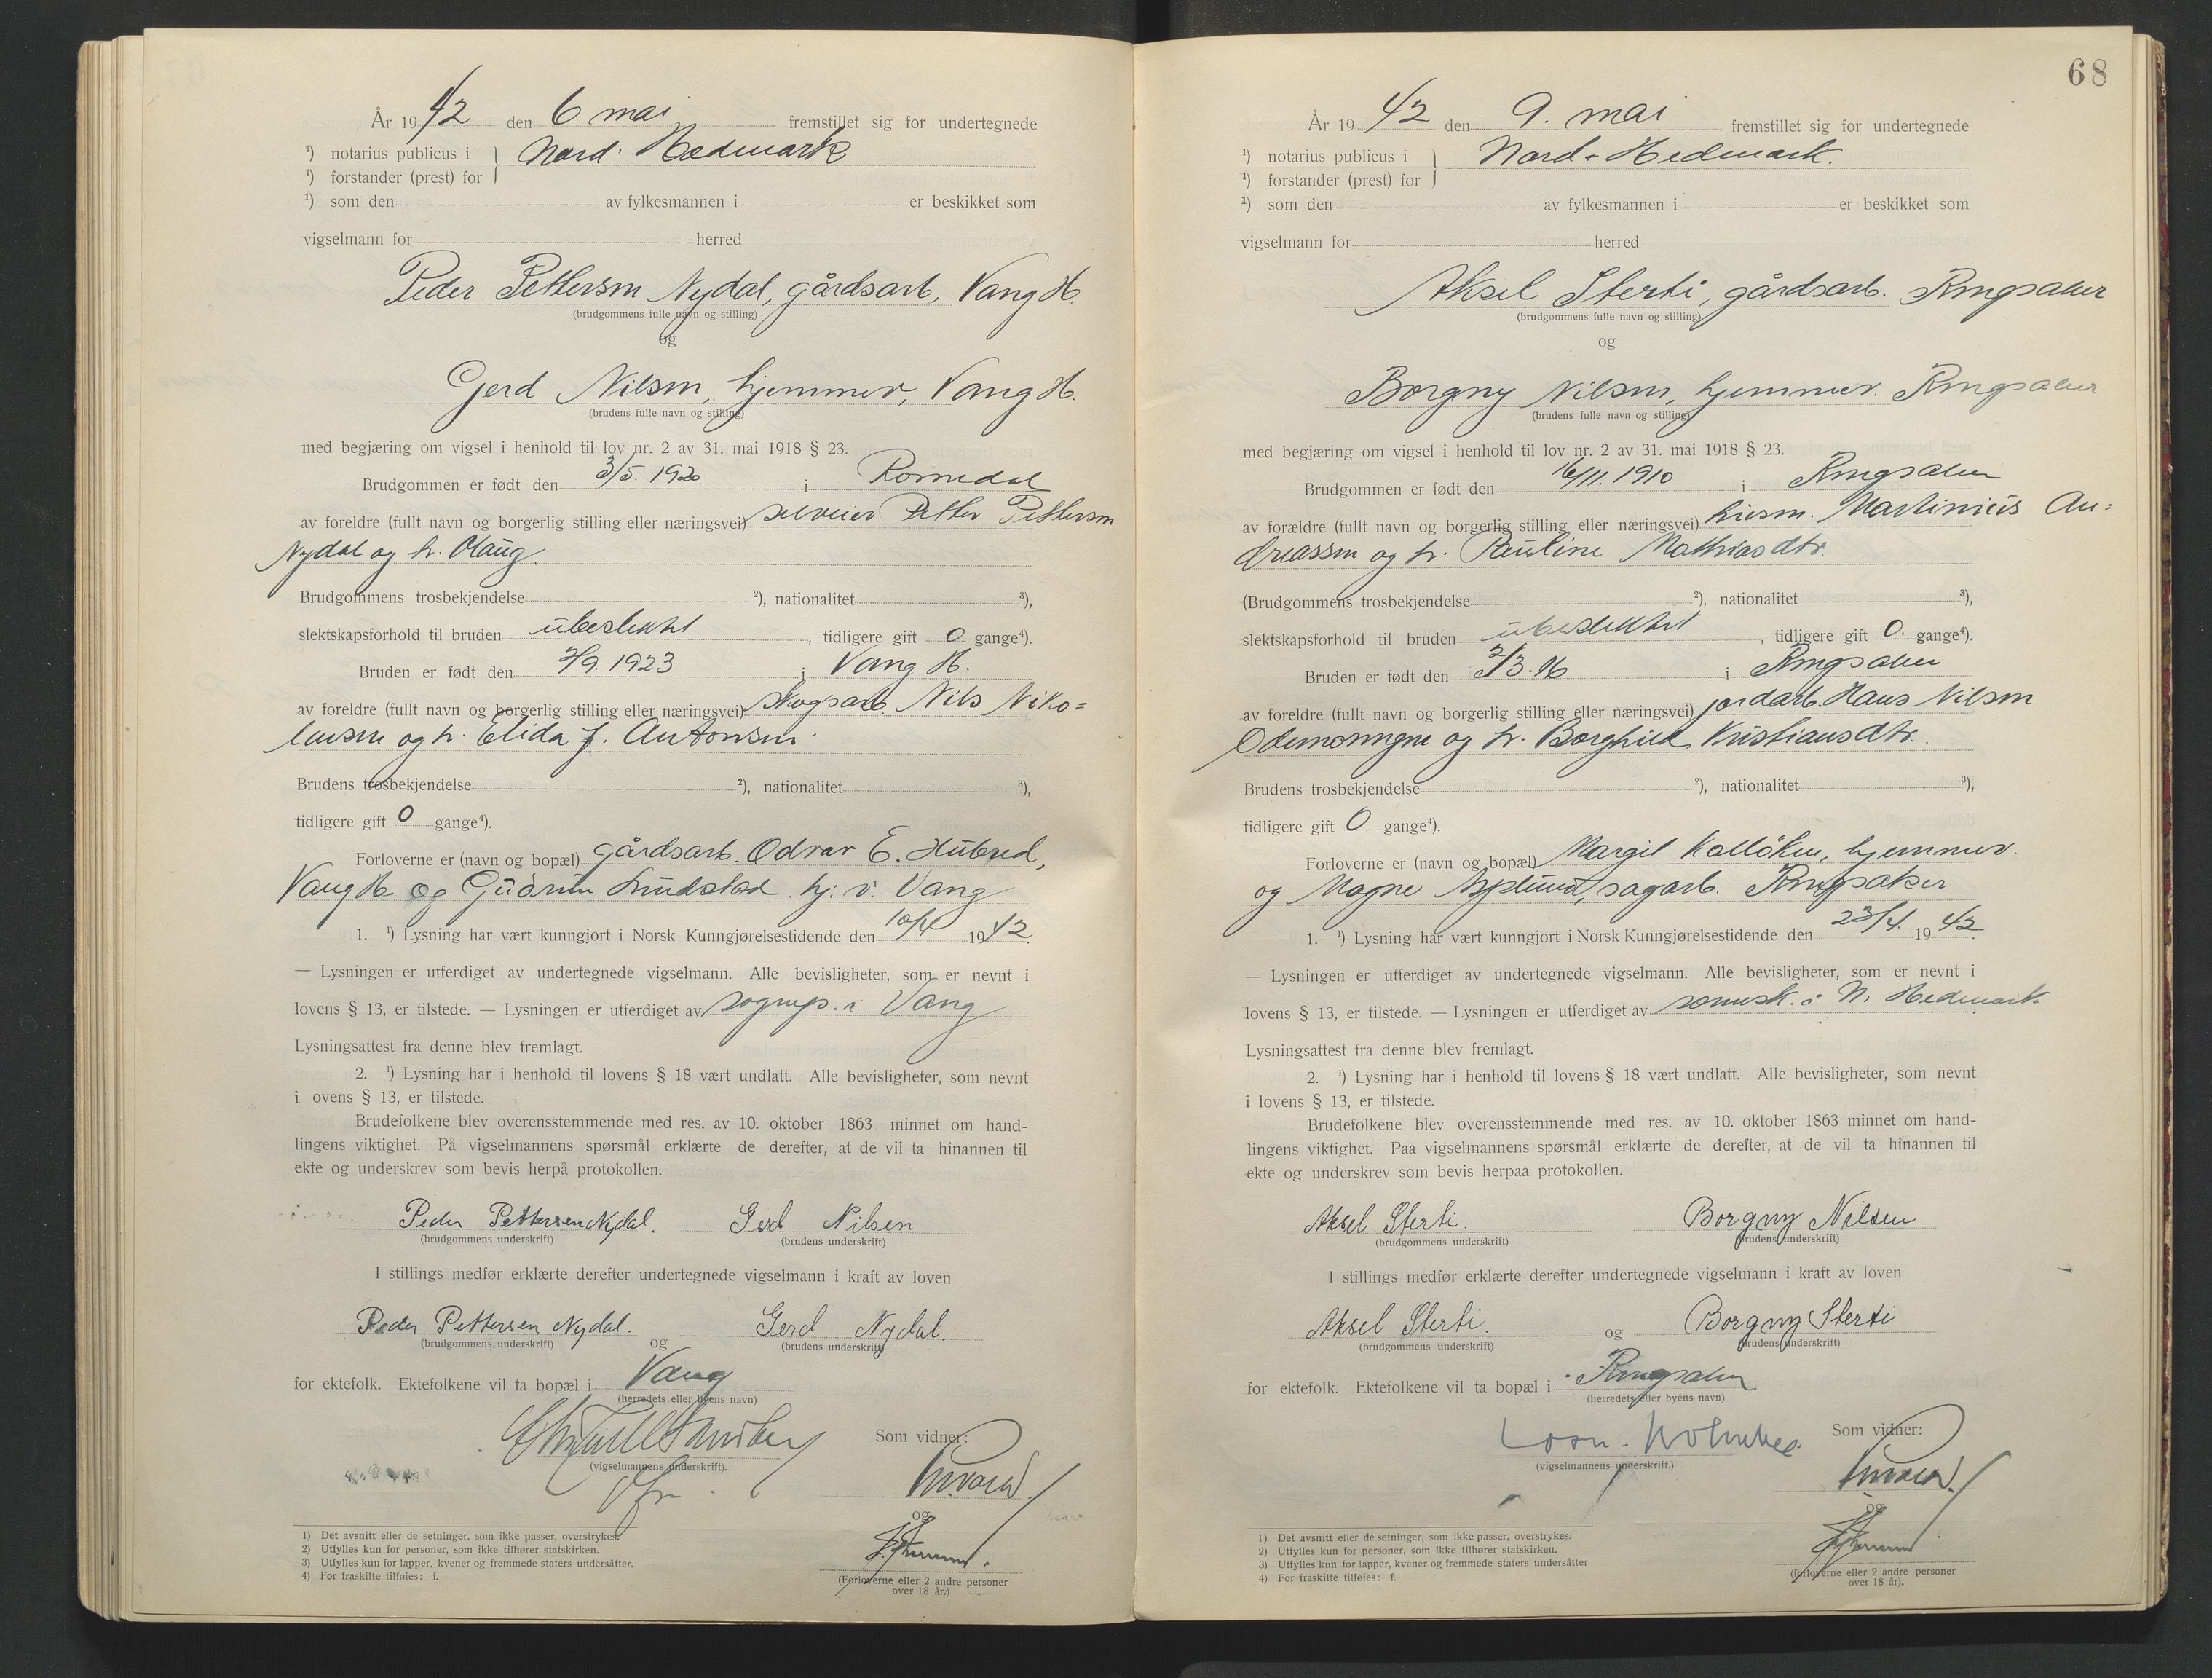 År 1942 den 6 mai fremstillet sig for undertegnede
¹) notarius publicus i } Nord-Hedmark
¹) forstander (prest) for
¹) som den av fylkesmannen i er beskikket som
vigselmann for herred
Peder Pettersen Nydal, gårdsarb, Vang H.
(brudgommens fulle navn og stilling)
og
Gerd Nilsen, hjemmev, Vang H.
(brudens fulle navn og stilling)
med begjæring om vigsel i henhold til lov nr. 2 av 31. mai 1918 § 23.
Brudgommen er født den 3/5. 1920 i Romedal
av foreldre (fullt navn og borgerlig stilling eller næringsvei) selveier Petter Pettersen
Nydal og h. Olaug.
Brudgommens trosbekjendelse ²), nationalitet ³),
slektskapsforhold til bruden ubeslektet, tidligere gift 0 gange⁴).
Bruden er født den 2/9. 1923 i Vang H.
av foreldre (fullt navn og borgerlig stilling eller næringsvei) skogsarb. Nils Niko=
laisen og h. Elida f. Antonsen.
Brudens trosbekjendelse ²), nationalitet ³),
tidligere gift 0 gange⁴).
Forloverne er (navn og bopæl) gårdsarb. Odvar E. Hubred,
Vang H og Gudrun Lundstad hj. v. Vang
1. ¹) Lysning har vært kunngjort i Norsk Kunngjørelsestidende den 10/4 1942.
— Lysningen er utferdiget av undertegnede vigselmann. Alle bevisligheter, som er nevnt i
lovens § 13, er tilstede. — Lysningen er utferdiget av sognep. i Vang
Lysningsattest fra denne blev fremlagt.
2. ¹) Lysning har i henhold til lovens § 18 vært undlatt. Alle bevisligheter, som nevnt
i ovens § 13, er tilstede.
Brudefolkene blev overensstemmende med res. av 10. oktober 1863 minnet om hand-
lingens viktighet. På vigselmannens spørsmål erklærte de derefter, at de vil ta hinannen til
ekte og underskrev som bevis herpå protokollen.
Peder Pettersen Nydal. Gerd Nilsen
(brudgommens underskrift) (brudens underskrift)
I stillings medfør erklærte derefter undertegnede vigselmann i kraft av loven
Peder Pettersen Nydal. og Gerd Nydal.
(brudgommens underskrift) (brudens underskrift)
for ektefolk. Ektefolkene vil ta bopæl i Vang
(herredets eller byens navn)
Som vidner:
(vigselmannens underskrift).
og
1) Det avsnitt eller de setninger, som ikke passer, overstrykes.
2) Utfylles kun for personer, som ikke tilhører statskirken.
3) Utfylles kun for lapper, kvener og fremmede staters undersåtter.
4) For fraskilte tilføies: f.
(Forloverne eller 2 andre personer
over 18 år.)
68
År 1942 den 9. mai fremstillet sig for undertegnede
¹) notarius publicus i } Nord-Hedmark.
¹) forstander (prest) for
¹) som den av fylkesmannen i er beskikket som
vigselmann for herred
Aksel Sterti, gårdsarb. Ringsaker
(brudgommens fulle navn og stilling)
og
Borgny Nilsen, hjemmev. Ringsaker
(brudens fulle navn og stilling)
med begjæring om vigsel i henhold til lov nr. 2 av 31. mai 1918 § 23.
Brudgommen er født den 16/11. 1910 i Ringsaker
av forældre (fullt navn og borgerlig stilling eller næringsvei) husm. Martinius An=
dreassen og h. Pauline Mathiasdtr.
(Brudgommens trosbekjendelse ²), nationalitet ³),
slektskapsforhold til bruden ubeslektet, tidligere gift 0. gange⁴).
Bruden er født den 2/3.16 i Ringsaker
av foreldre (fullt navn og borgerlig stilling eller næringsvei) jordarb. Hans Nilsen
og h. Borghild Kristiansdtr.
Brudens trosbekjendelse ²), nationalitet ³),
tidligere gift 0 gange⁴).
Forloverne er (navn og bopæl) Margit hjemmev.
og Magne Asplund, sagarb. Ringsaker
1. ¹) Lysning har vært kunngjort i Norsk Kunngjørelsestidende den 23/4. 1942.
— Lysningen er utferdiget av undertegnede vigselmann. Alle bevisligheter, som er nevnt i
lovens § 13, er tilstede. — Lysningen er utferdiget av sorensk. i N. Hedmark.
Lysningsattest fra denne blev fremlagt.
2. ¹) Lysning har i henhold til lovens § 18 vært undlatt. Alle bevisligheter, som nevnt
i lovens § 13, er tilstede.
Brudefolkene blev overensstemmende med res. av 10. oktober 1863 minnet om hand-
lingens viktighet. Paa vigselmannens spørsmål erklærte de derefter, at de vil ta hinannen til
ekte og underskrev som bevis herpaa protokollen.
Aksel Sterti. Borgny Nilsen
(brudgommens underskrift) (brudens underskrift)
I stillings medfør erklærte derefter undertegnede vigselmann i kraft av loven
Aksel Sterti. og Borgny Sterti
(brudgommens underskrift) (brudens underskrift)
for ektefolk. Ektefolkene vil ta bopæl i Ringsaker
(herredets eller byens navn)
Som vidner:
(vigselmannens underskrift.)
og
1) Det avsnitt eller de setninger, som ikke passer, overstrykes.
2) Utfylles kun for personer, som ikke tilhører statskirken.
3) Utfylles kun for lapper, kvener og fremmede staters undersåtter
4) For fraskilte tilføies: f.
(forloverne eller 2 andre personer
over 18 år).